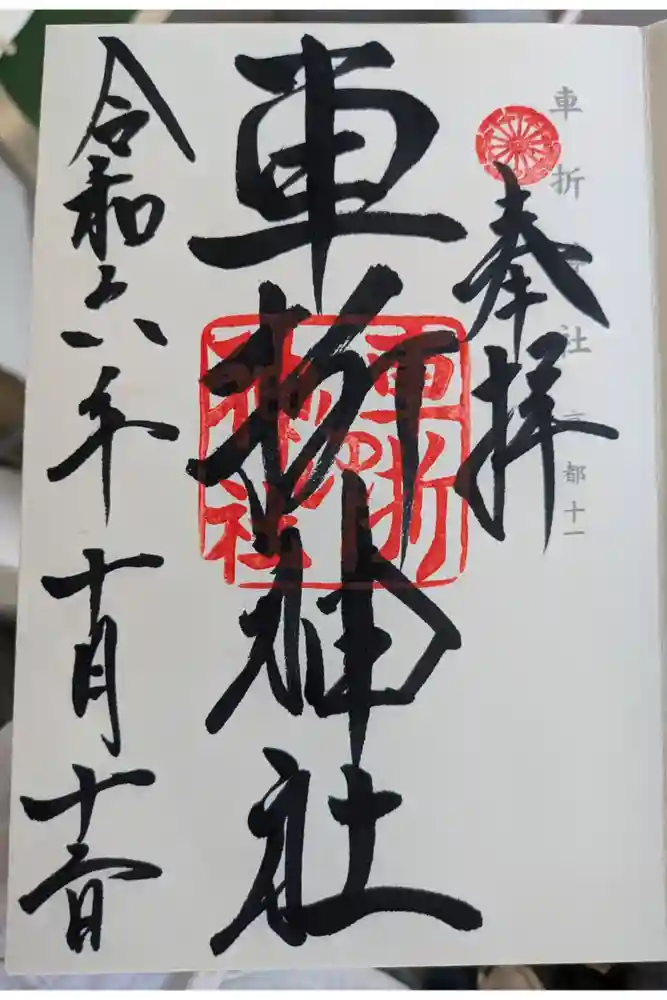 車折神社 京都十一
奉拝
車折神社
車折
神社
令和六年十月十二日